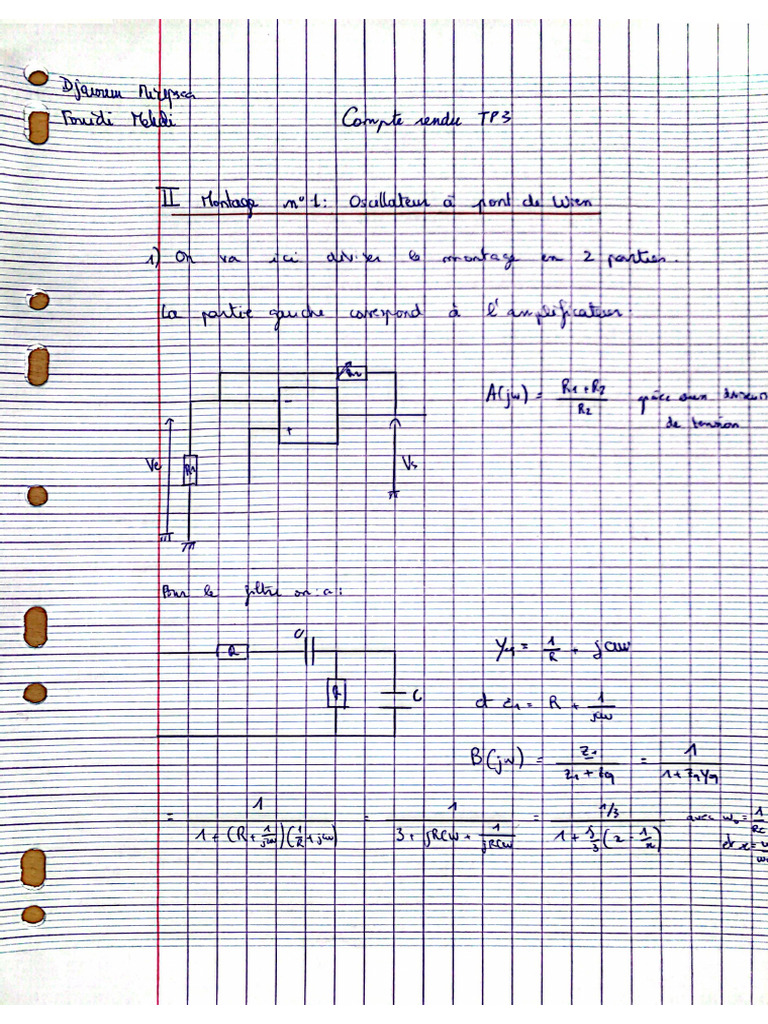 Compte rendu TP3
II Montage n°1: Oscillateur à pont de Wien
1) On va ici diviser le montage en 2 parties.
La partie gauche correspond à l'amplificateur.
R2
-
+
Ve
R1
Vs
A(jω) = (R1+R2)/R2 grâce aux diviseurs
de tension
Pour le filtre on a:
R
C
R
C
= 1/R + jCω
et Z1 = R + 1/jCω
B(jω) = = 1/
= 1/(1 + (R + 1/jCω)(1/R + jCω)) = 1/(3 + jRCω + 1/jRCω) = (1/3)/ avec ω0 = 1/RC